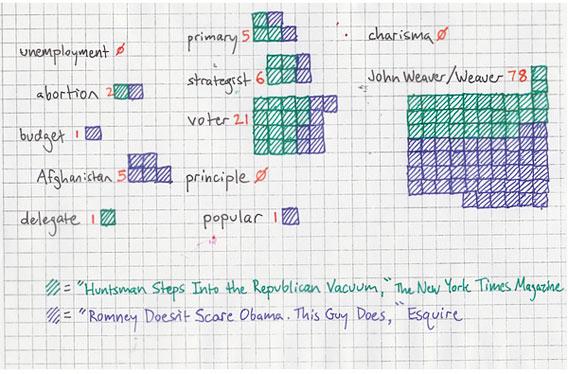 unemployment 0
abortion 2
budget 1
Afghanistan 5
delegate 1
primary 5
strategist 6
voter 21
principle 0
popular 1
charisma 0
John Weaver/Weaver 78
= "Huntsman Steps Into the Republican Vacuum," The New York Times Magazine
= "Romney Doesn't Scare Obama. This Guy Does," Esquire